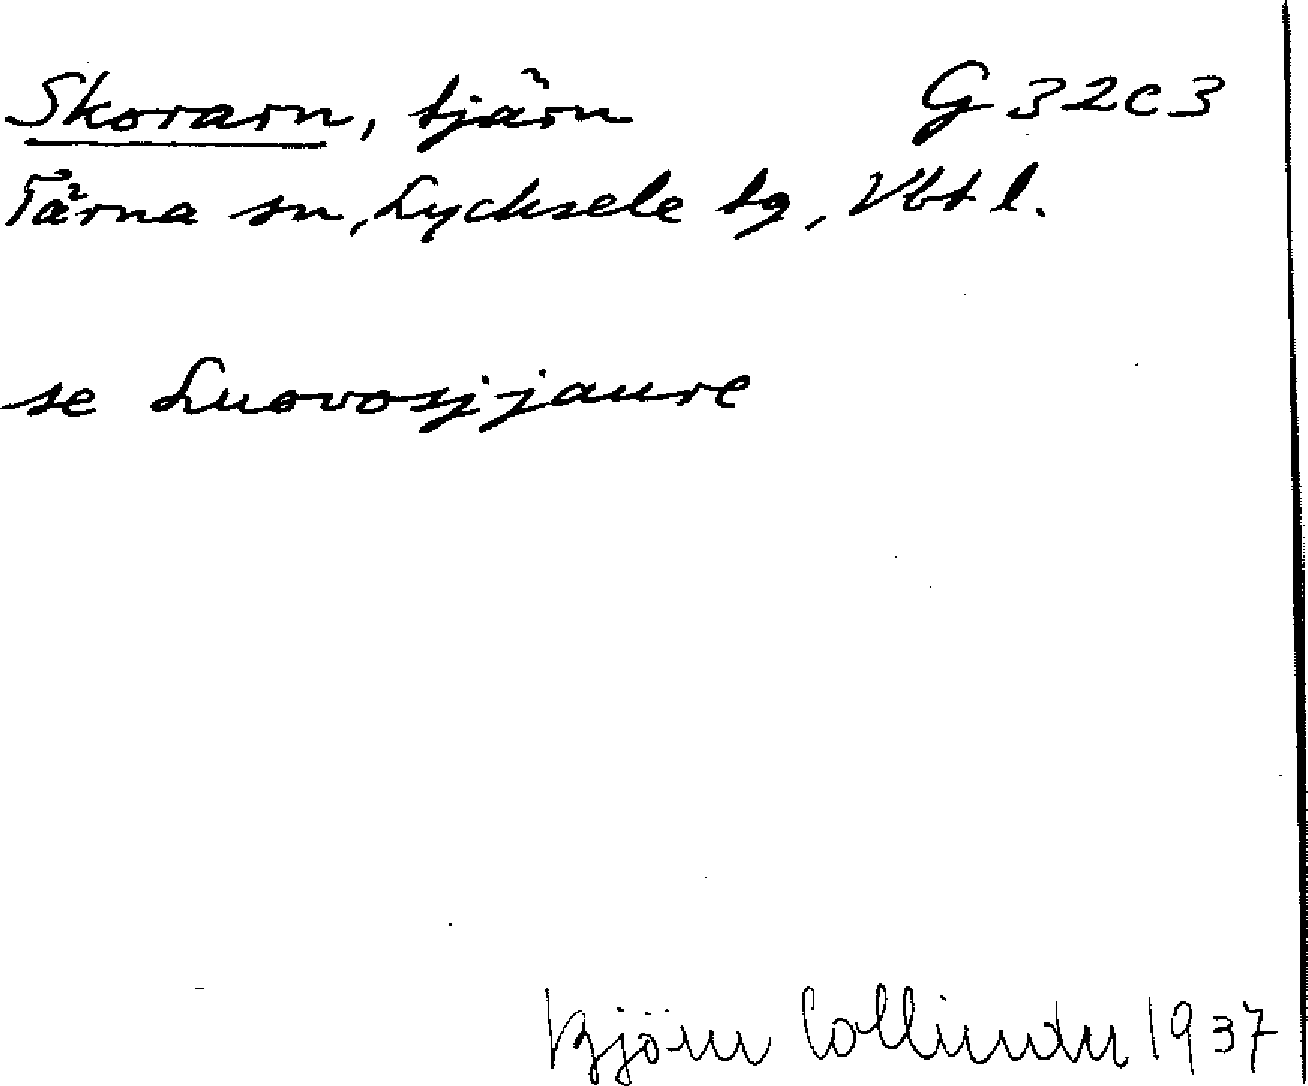 Skorarn, tjärn G 32 c 3
Tärna sn, Lycksele tg, Vbt l.
se Luovosjjaure
Björn Collinder 1937